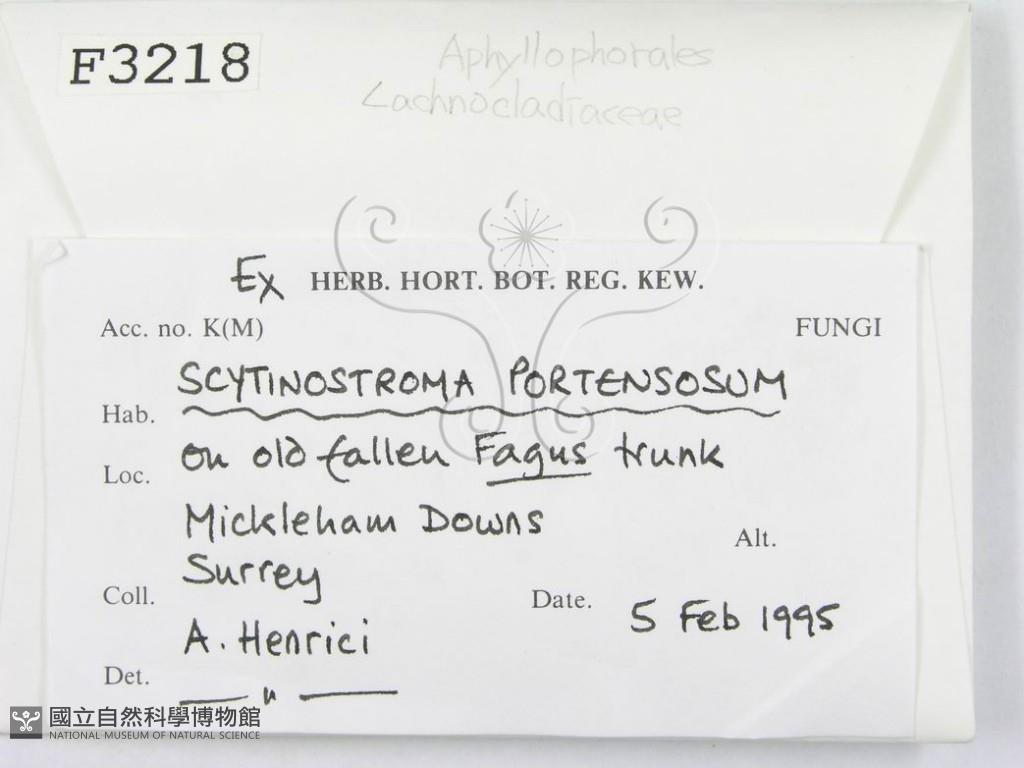 F3218
Aphyllophorales
Lachnocladiaceae
Ex HERB. HORT. BOT. REG. KEW.
Acc. no. K(M) FUNGI
SCYTINOSTROMA PORTENSOSUM
Hab. on old fallen Fagus trunk
Loc. Mickleham Downs
Surrey
Alt.
Coll. A. Henrici
Date. 5 Feb 1995
Det. — " —
國立自然科學博物館
NATIONAL MUSEUM OF NATURAL SCIENCE